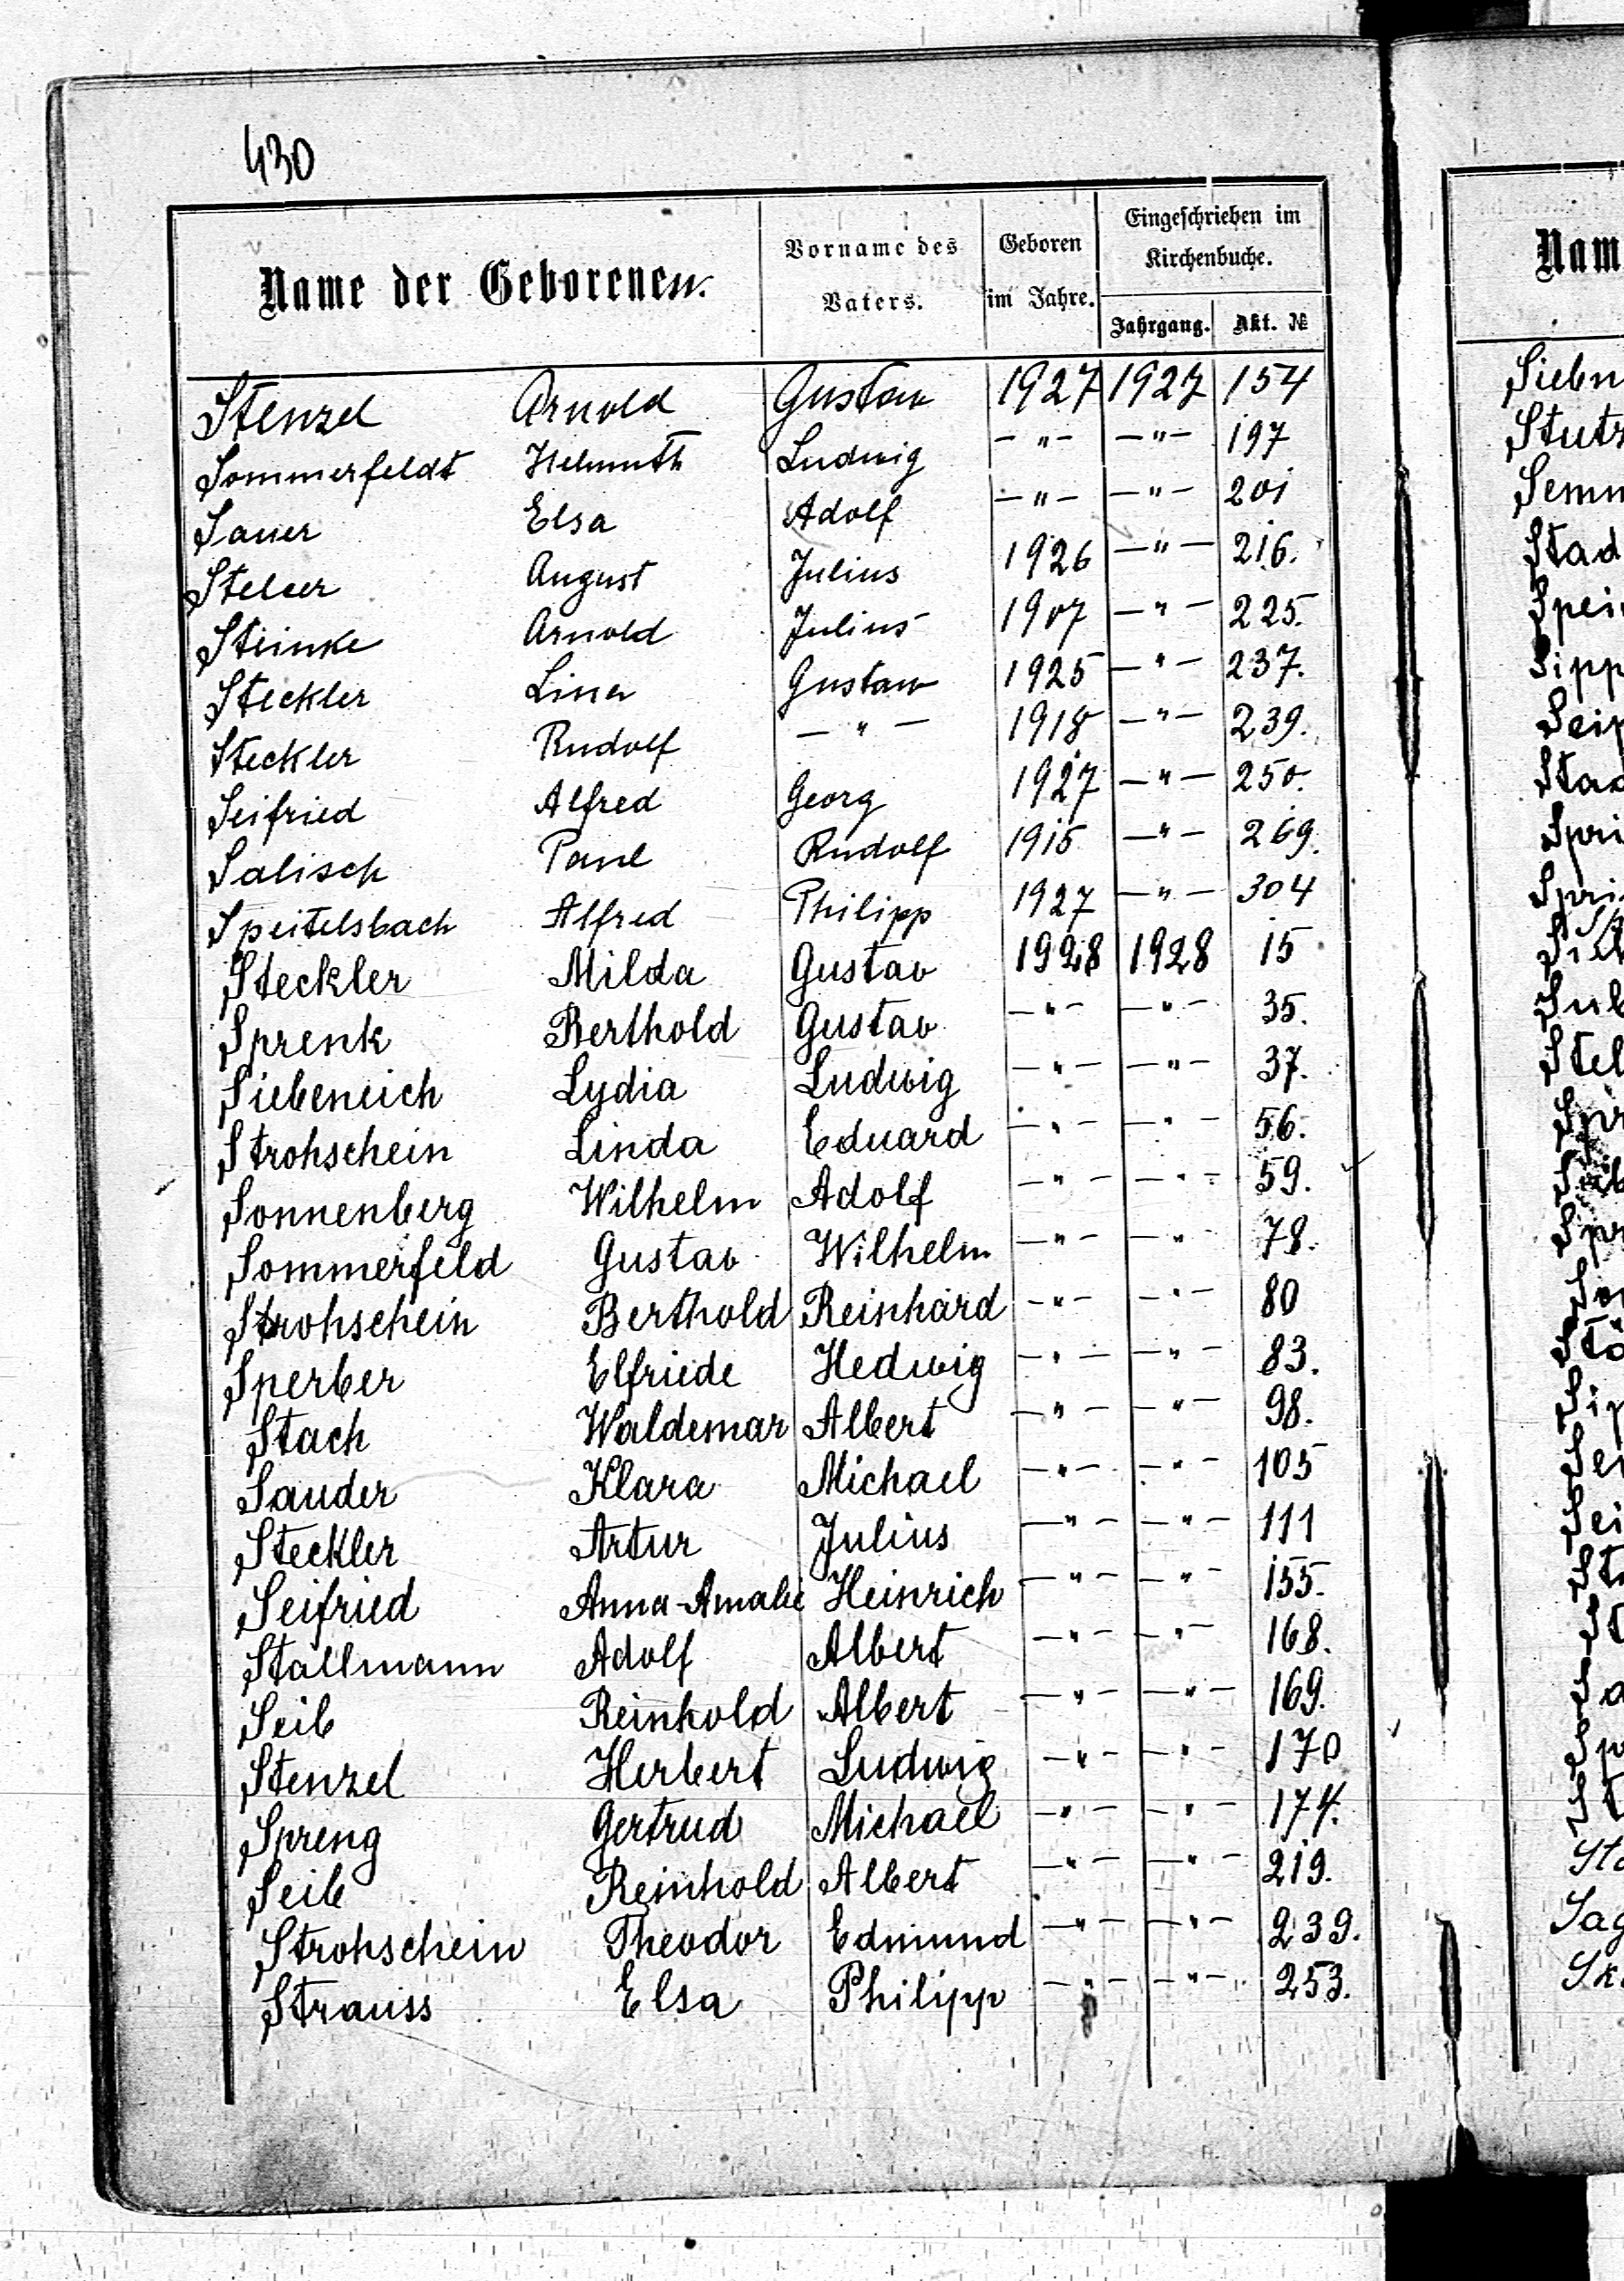 430
Name der Geborenen. Vorname des Vaters. Geboren im Jahre. Eingeschrieben im Kirchenbuche.
Jahrgang. Akt. №
Stenzel Arnold Gustav 1927 1927 154
Sommerfeldt Helmuth Ludwig —"— —"— 197
Sauer Elsa Adolf —"— —"— 201
Stelcer August Julius 1926 —"— 216.
Steinke Arnold Julius 1907 —"— 225.
Steckler Lina Gustaw 1925 —"— 237.
Steckler Rudolf —"— 1918 —"— 239.
Seifried Alfred Georg 1927 —"— 250.
Salisch Paul Rudolf 1915 —"— 269.
Speitelsbach Alfred Philipp 1927 —"— 304
Steckler Milda Gustav 1928 1928 15
Sprenk Berthold Gustav —"— —"— 35.
Siebeneich Lydia Ludwig —"— —"— 37.
Strohschein Linda Eduard —"— —"— 56.
Sonnenberg Wilhelm Adolf —"— —"— 59.
Sommerfeld Gustav Wilhelm —"— —"— 78.
Strohschein Berthold Reinhard —"— —"— 80
Sperber Elfriede Hedwig —"— —"— 83.
Stach Waldemar Albert —"— —"— 98.
Sauder Klara Michael —"— —"— 105
Steckler Artur Julius —"— —"— 111
Seifried Anna-Amalie Heinrich —"— —"— 155.
Stallmann Adolf Albert —"— —"— 168.
Seib Reinhold Albert —"— —"— 169.
Stenzel Herbert Ludwig —"— —"— 170
Spreng Gertrud Michael —"— —"— 174.
Seib Reinhold Albert —"— —"— 219.
Strohschein Theodor Edmund —"— —"— 239.
Strauss Elsa Philipp —"— —"— 253.
Nam
Siebn
Stutz
Semn
Stad
Spei
Sipp
Seip
Stad
Spri
Spri